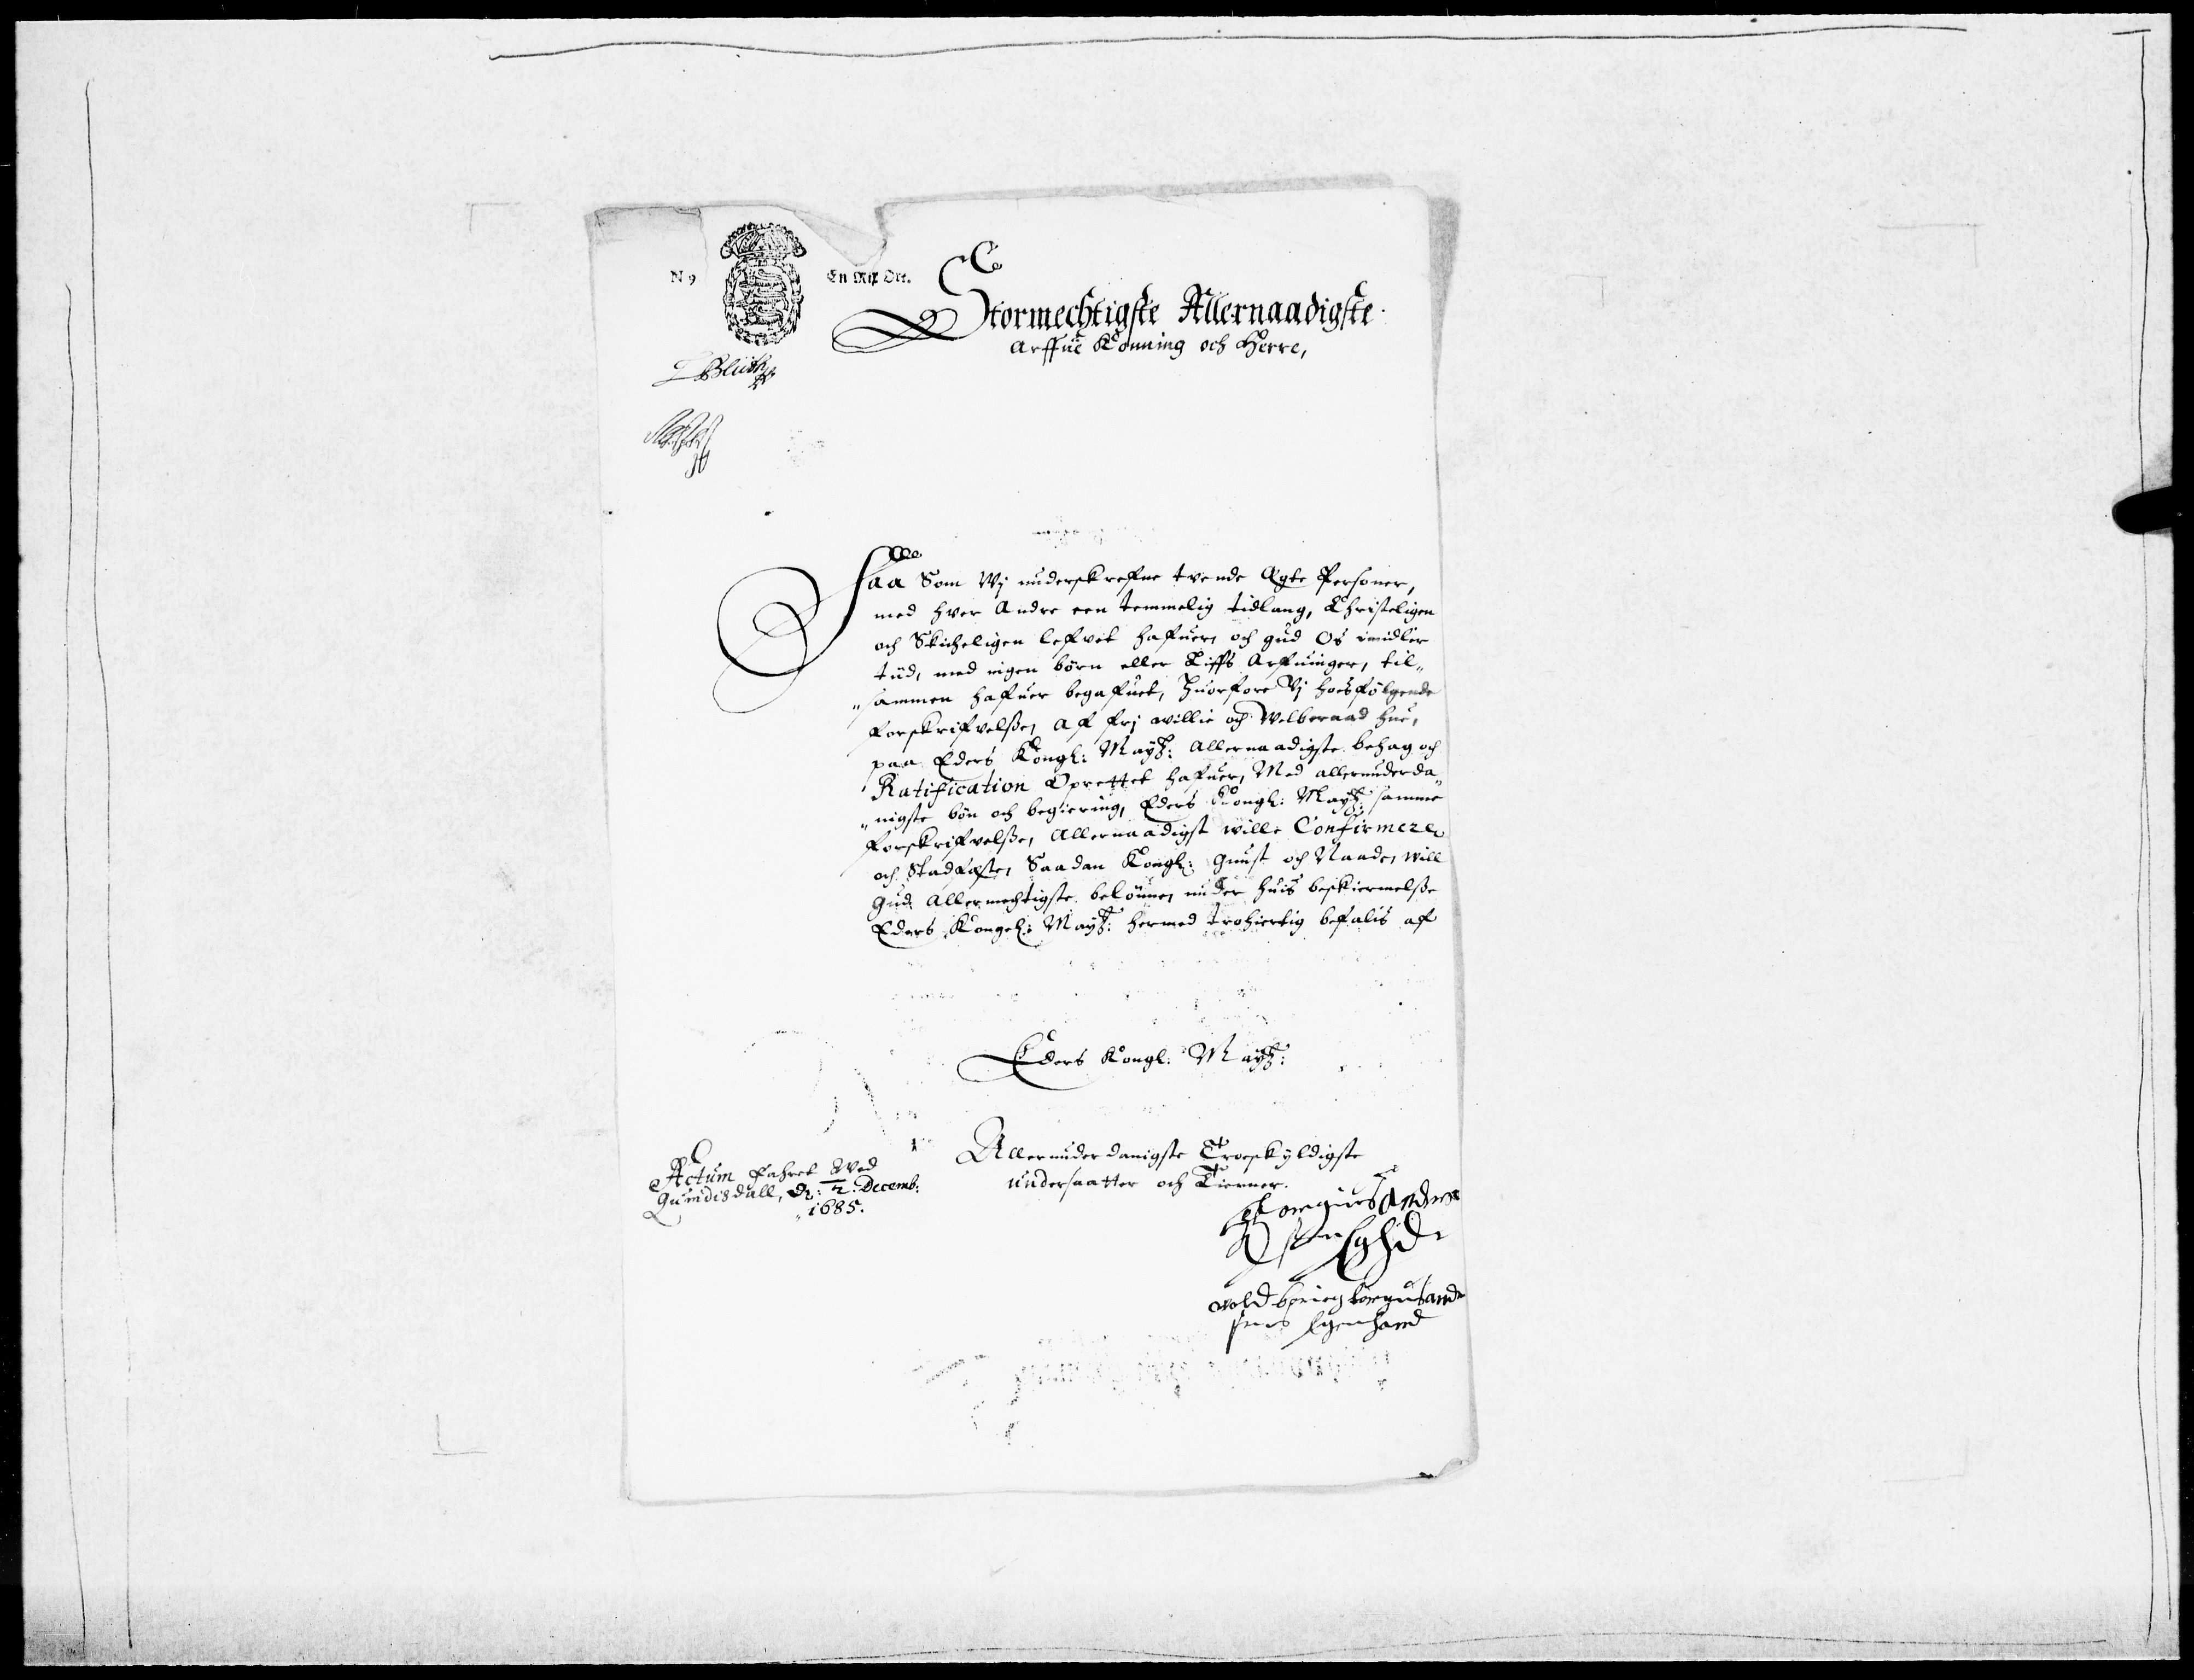 N 9
En Rix Ort.
Stormechtigste Allernaadigste
Arffue Konning och Herre,
Saa Som Wj underskrefne tvende Ægte Personer,
med hver Andre een temmelig tidlang, Christeligen
och Skicheligen lefvet hafuer, och gud Os imidler
tiid, med ingen börn eller Liffs Arfuinger, til„
„sammen hafuer begafuet, Huorfore Vj hoesfölgende
forskrifvelße, af frj willie och Velberaad hue,
paa Eders Kongl: Mayt: Allernaadigste behag och
Ratification Oprettet hafuer, Med allerunderda„
„nigste bön och begiering, Eders Kongl: Mayt: samme
forskrifvelße, Allernaadigst wille Confirmere
och Stadfæste, Saadan Kongl: Gunst och Naade, will
Gud Allermechtigste belönne, under huis beskiermelße
Eders Kongel: Mayt: hermed trohiertig befalis af
Eders Kongl: Mayt:
Allerunderdanigste Troeskyldigste
undersaatter och Tienner.
Actum Fahret Wed
Qumdisdall, dn: 2: Decemb:
1685.
sen Eghd
sens Egenhand